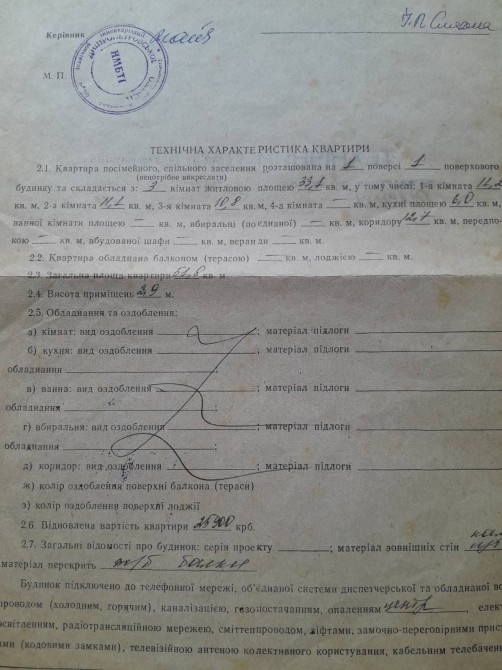 Керівник
М. П.
НМБТІ
ТЕХНІЧНА ХАРАКТЕРИСТИКА КВАРТИРИ
2.1. Квартира посімейного, спільного заселення розташована на 1 поверсі 1 поверхового
(непотрібне викреслити)
будинку та складається з: 3 кімнат житловою площею 33,1 кв. м, у тому числі: 1-а кімната
кв. м, 2-а кімната 11,1 кв. м, 3-я кімната 10,8 кв. м, 4-а кімната — кв. м, кухні площею 6,0 кв. м,
ванної кімнати площею — кв. м, вбиральні (поєднаної) — кв. м, коридору 12,7 кв. м, передпо-
кою — кв. м, вбудованої шафи — кв. м, веранди — кв. м.
2.2. Квартира обладнана балконом (терасою) — кв. м, лоджією — кв. м.
2.3. Загальна площа квартири 51,8 кв. м
2.4. Висота приміщень 2,9 м.
2.5. Обладнання та оздоблення:
а) кімнат: вид оздоблення ; матеріал підлоги
б) кухня: вид оздоблення ; матеріал підлоги
обладнання
в) ванна: вид оздоблення ; матеріал підлоги
обладнання
г) вбиральня: вид оздоблення ; матеріал підлоги
обладнання
д) коридор: вид оздоблення ; матеріал підлоги
ж) колір оздоблення поверхні балкона (тераси)
з) колір оздоблення поверхні лоджії
2.6. Відновлена вартість квартири 25900 крб.
2.7. Загальні відомості про будинок: серія проекту ; матеріал зовнішніх стін
матеріал перекрить балки
Будинок підключено до телефонної мережі, об'єднаної системи диспетчерської та обладнано во
проводом (холодним, горячим), каналізацією, газопостачанням, опаленням центр , елек
освітленням, радіотрансляційною мережею, сміттепроводом, ліфтами, замочно-переговірними прист
ами (кодовими замками), телевізійною антеною колективного користування, кабельним телебачен